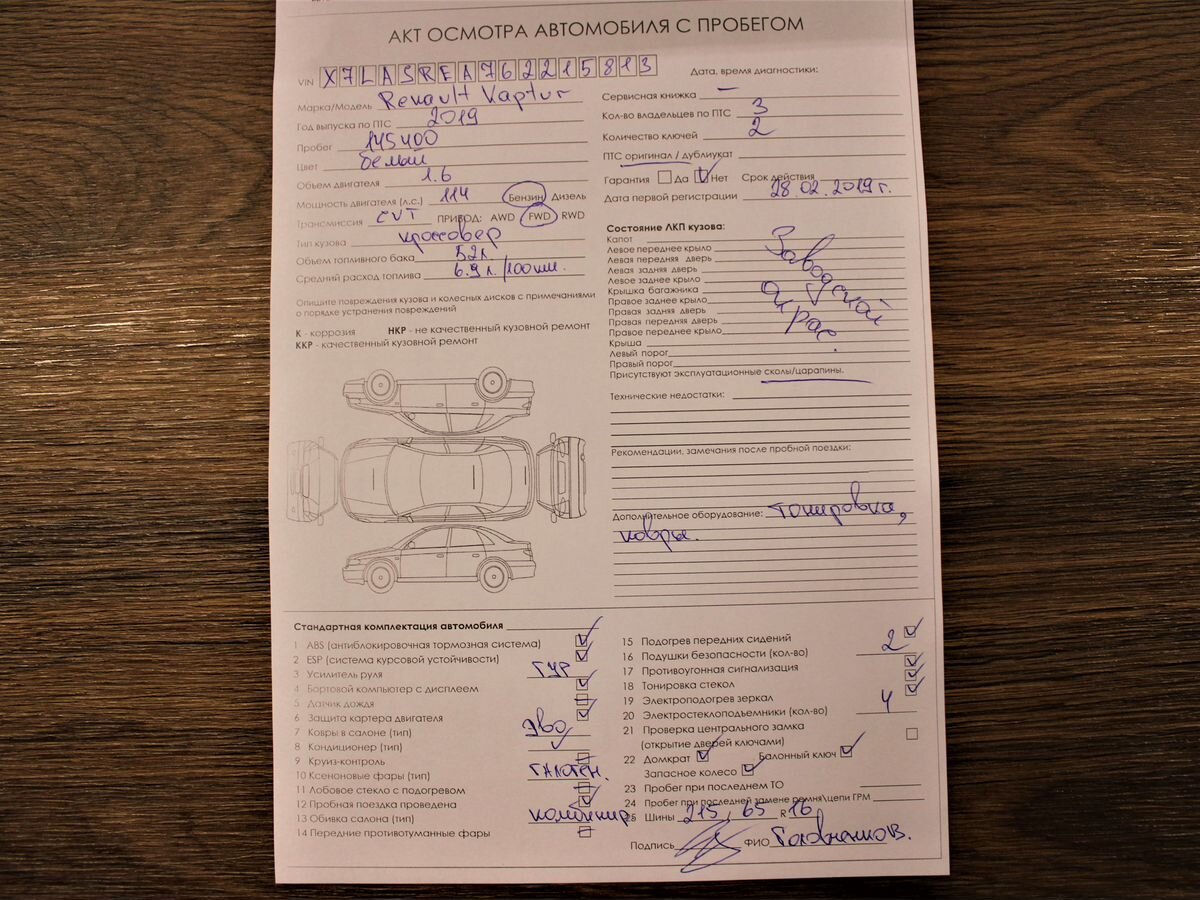 АКТ ОСМОТРА АВТОМОБИЛЯ С ПРОБЕГОМ
VIN X7LASREA762215813
Марка/Модель Renault Kaptur
Год выпуска по ПТС 2019
Пробег 145400
Цвет белый
Объем двигателя 1.6
Мощность двигателя (л.с.) 114 Бензин Дизель
Трансмиссия CVT ПРИВОД: AWD FWD RWD
Тип кузова кроссовер
Объем топливного бака 52л.
Средний расход топлива 6.9 л./100км.
Опишите повреждения кузова и колесных дисков с примечаниями
о порядке устранения повреждений
К - коррозия НКР - не качественный кузовной ремонт
ККР - качественный кузовной ремонт
Дата, время диагностики:
Сервисная книжка —
Кол-во владельцев по ПТС 3
Количество ключей 2
ПТС оригинал / дубликат
Гарантия Да Нет Срок действия
Дата первой регистрации 28.02.2019г.
Состояние ЛКП кузова:
Капот
Левое переднее крыло
Левая передняя дверь
Левая задняя дверь
Левое заднее крыло
Крышка багажника
Правое заднее крыло
Правая задняя дверь
Правая передняя дверь
Правое переднее крыло
Крыша
Левый порог
Правый порог
Заводской
окрас.
Присутствуют эксплуатационные сколы/царапины.
Технические недостатки:
Рекомендации, замечания после пробной поездки:
Дополнительное оборудование: тонировка,
ковры.
Стандартная комплектация автомобиля
1 ABS (антиблокировочная тормозная система)
2 ESP (система курсовой устойчивости)
3 Усилитель руля ГУР
4 Бортовой компьютер с дисплеем
5 Датчик дождя
6 Защита картера двигателя
7 Ковры в салоне (тип) эво
8 Кондиционер (тип)
9 Круиз-контроль
10 Ксеноновые фары (тип) галоген.
11 Лобовое стекло с подогревом
12 Пробная поездка проведена
13 Обивка салона (тип) комбинир
14 Передние противотуманные фары
15 Подогрев передних сидений
16 Подушки безопасности (кол-во) 2
17 Противоугонная сигнализация
18 Тонировка стекол
19 Электроподогрев зеркал
20 Электростеклоподъемники (кол-во) 4
21 Проверка центрального замка
(открытие дверей ключами)
22 Домкрат Балонный ключ
Запасное колесо
23 Пробег при последнем ТО
24 Пробег при последней замене ремня\цепи ГРМ
25 Шины 215 / 65 R 16
Подпись ФИО Головненко В.